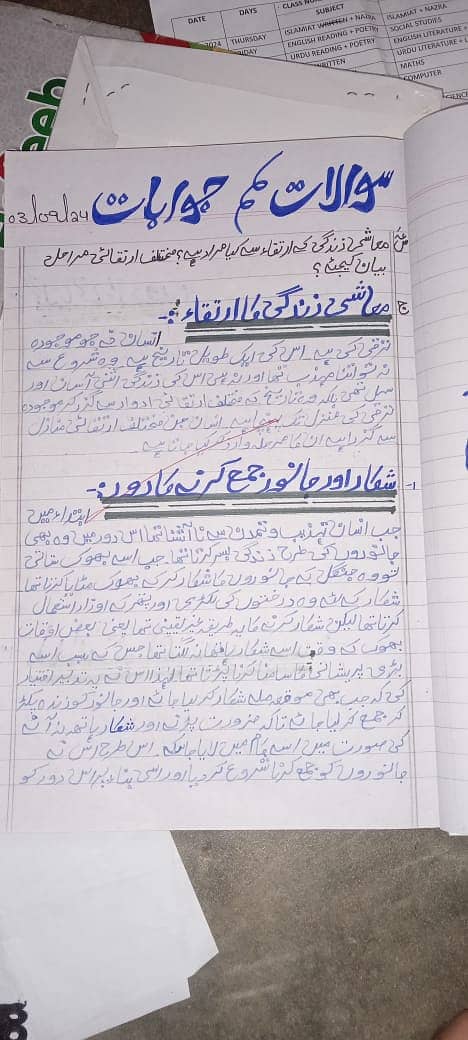 DATE DAYS SUBJECT
2024 THURSDAY ISLAMIAT WRITTEN + NAZRA ISLAMIAT + NAZRA
ENGLISH READING + POETRY SOCIAL STUDIES
URDU READING + POETRY ENGLISH LITERATURE +
URDU LITERATURE +
MATHS
COMPUTER
03/09/24
سوالات کے جوابات
معاشی زندگی کے ارتقاء سے کیا مراد ہے؟ مختلف ارتقائی مراحل
بیان کیجئے؟
ج معاشی زندگی کا ارتقاء :-
انسان نے جو موجودہ
ترقی کی ہے اس کی ایک طویل تاریخ ہے وہ شروع سے
نہ تو اتنا مہذب تھا اور نہ ہی اس کی زندگی اتنی آسان اور
سہل تھی بلکہ وہ تاریخ کے مختلف ارتقائی ادوار سے گزر کر موجودہ
ترقی کی منزل تک پہنچا ہے انسان جن مختلف ارتقائی منازل
سے گزرا ہے ان کا مرحلہ وار ذکر کیا جاتا ہے۔
۱- شکار اور جانور جمع کرنے کا دور:-
ابتداء میں
جب انسان تہذیب و تمدن سے نا آشنا تھا اس دور میں وہ بھی
جانوروں کی طرح زندگی بسر کرتا تھا جب اسے بھوک ستاتی
تو وہ جنگل کے جانوروں کا شکار کر کے بھوک مٹایا کرتا تھا
شکار کے لئے وہ درختوں کی لکڑی اور پتھر کے اوزار استعمال
کرتا تھا لیکن شکار کرنے کا یہ طریقہ غیر یقینی تھا یعنی بعض اوقات
بھوک کے وقت اسے شکار ہاتھ نہ لگتا تھا جس کے سبب اسے
بڑی پریشانی کا سامنا کرنا پڑتا تھا لہذا اس نے یہ تدبیر اختیار
کی کہ جب بھی موقعہ ملے شکار کر لیا جائے اور جانور کو زندہ پکڑ
کر جمع کر لیا جائے تاکہ ضرورت پڑنے اور شکار ہاتھ نہ آنے
کی صورت میں اسے کام میں لایا جا سکے اس طرح اس نے
جانوروں کو جمع کرنا شروع کر دیا اور اسی بناء پر اس دور کو